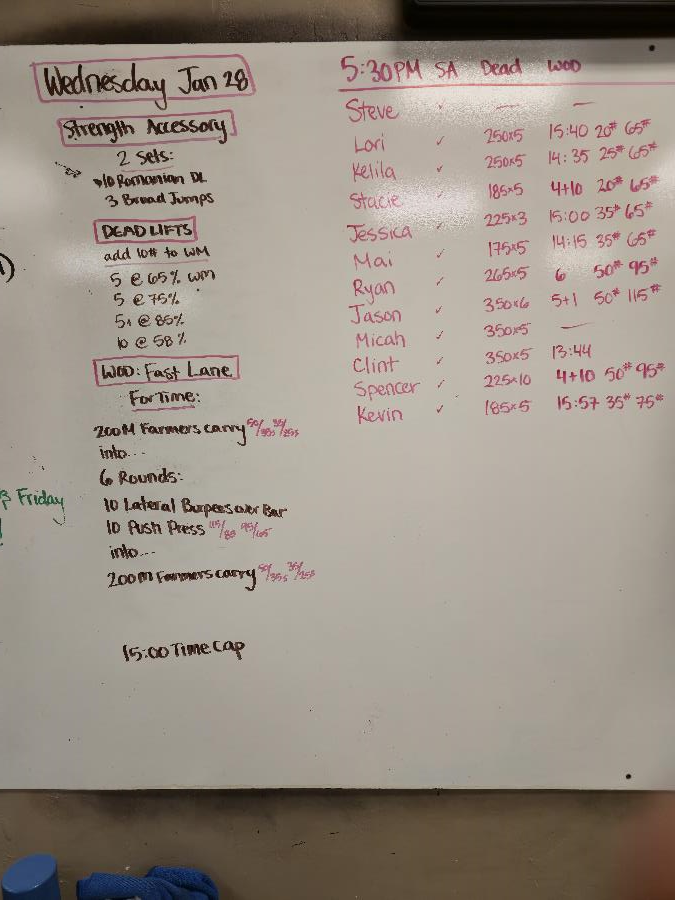 Wednesday Jan 28
Strength Accessory
2 Sets:
10 Romanian DL
3 Broad Jumps
DEADLIFTS
add 10# to WM
5 @ 65% WM
5 @ 75%
5+ @ 85%
10 @ 58%
WOD: Fast Lane
For Time:
200M Farmers carry 50/35s 35/25s
into...
6 Rounds:
10 Lateral Burpees over Bar
10 Push Press 115/85 95/65
into...
200m Farmers carry 50/35s 35/25s
15:00 Time Cap
Friday
5:30PM SA Dead WOD
Steve ✓ — —
Lori ✓ 250x5 15:40 20# 65#
Kelila ✓ 250x5 14:35 25# 65#
Stacie ✓ 185x5 4+10 20# 65#
Jessica ✓ 225x3 15:00 35# 65#
Mai ✓ 175x5 14:15 35# 65#
Ryan ✓ 265x5 6 50# 95#
Jason ✓ 350x6 5+1 50# 115#
Micah ✓ 350x5 —
Clint ✓ 350x5 13:44
Spencer ✓ 225x10 4+10 50# 95#
Kevin ✓ 185x5 15:57 35# 75#